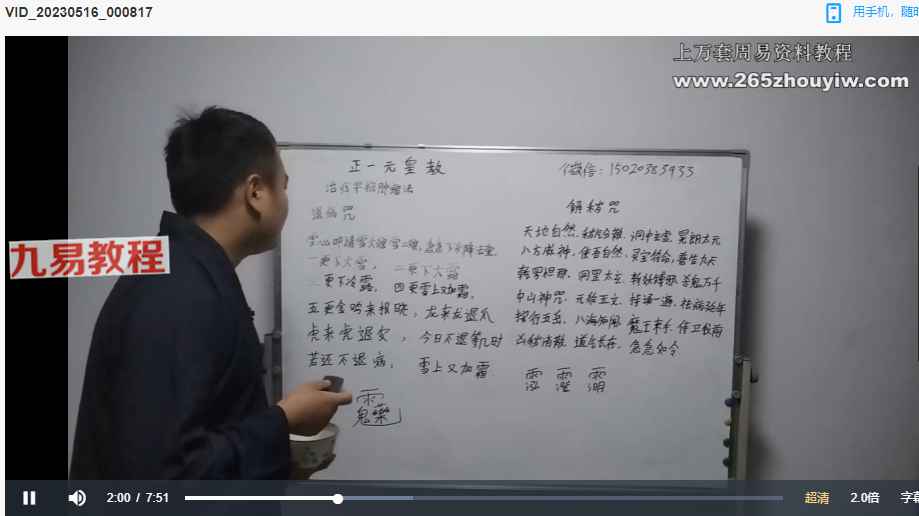 VID_20230516_000817
用手机，随时
上万套周易资料教程
www.265zhouyiw.com
九易教程
正一元皇教
微信：15020383933
治伤平稳肿瘤法
退病咒
雪山
一更下大雪，二更下大露
三更下冷露，四更雪上又加霜，
五更金鸡来报晓，龙来龙退爪
虎来虎退皮，今日不退等几时
若还不退病，雪上又加霜
解结咒
天地自然，秽炁分散，洞中玄虚，晃朗太元
八方威神，使吾自然，灵宝符命，普告九天
乾罗怛那，洞罡太玄，斩妖缚邪，杀鬼万千
中山神咒，元始玉文，持诵一遍，祛病延年
按行五岳，八海知闻，魔王束手，侍卫我轩
凶秽消散，道炁长存，急急如令
2:00 / 7:51
超清
2.0倍
字幕